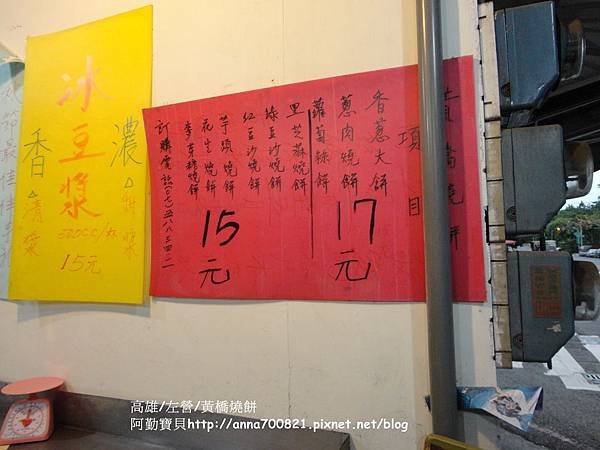 黃橋燒餅
項目
香蔥大餅
蔥肉燒餅
蘿蔔絲餅
17元
黑芝麻燒餅
綠豆沙燒餅
紅豆沙燒餅
芋頭燒餅
花生燒餅
麥芽糖燒餅
15元
訂購電話(〇七)五八八三四二一
濃
香
冰豆漿
500cc/杯
15元
清漿
高雄/左營/黃橋燒餅
阿勤寶貝http://anna700821.pixnet.net/blog